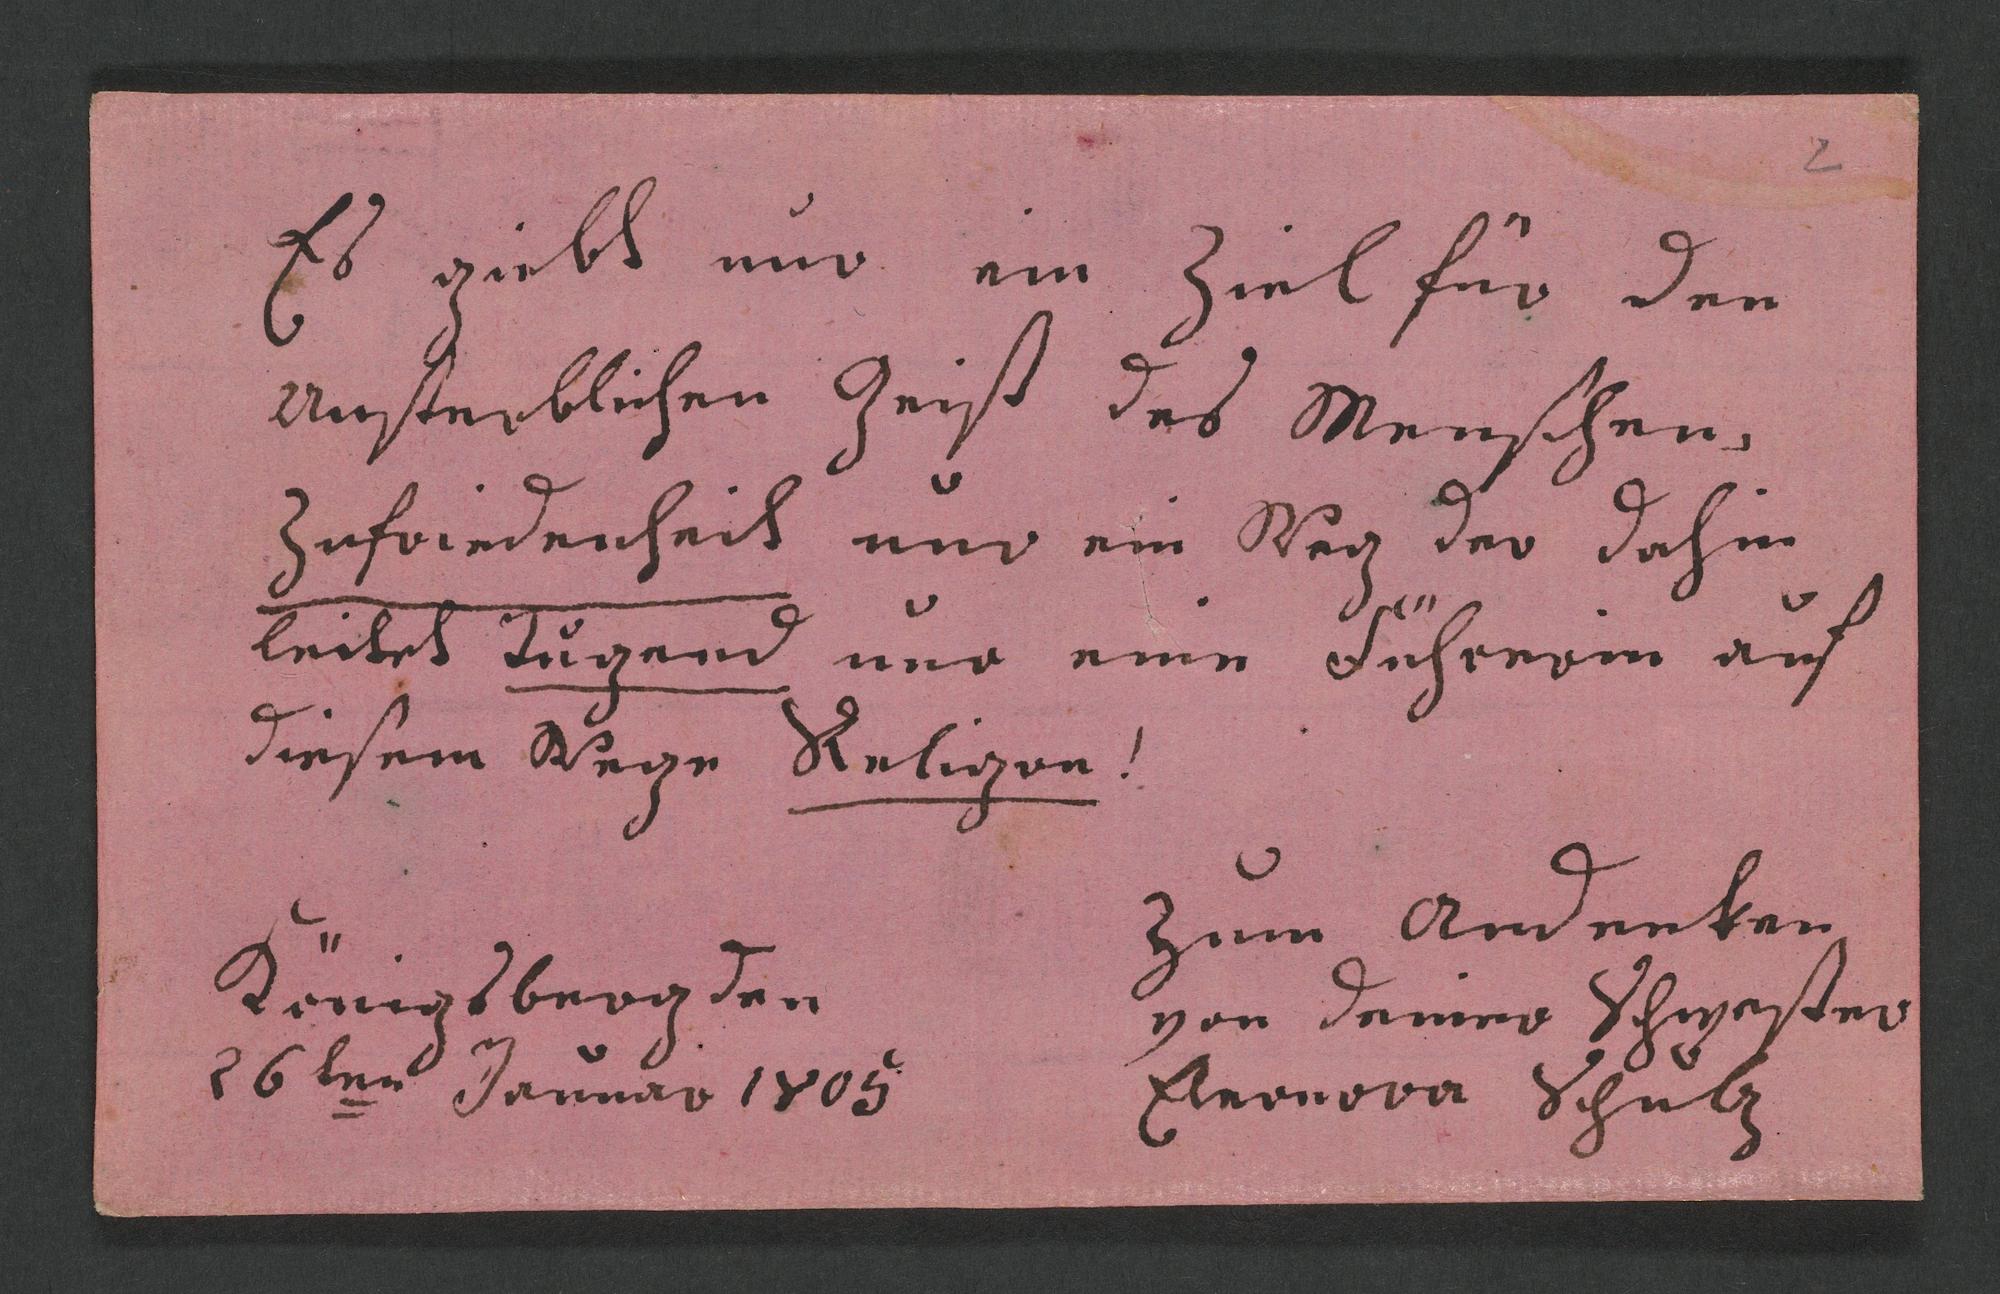 2
Es giebt nur ein Ziel für den
Unsterblichen Geist des Menschen,
Zufriedenheit nur ein Weg der dahin
leitet Tugend nur eine Führerin auf
diesem Wege Religion!
Zum Andenken
von deiner Schwester
Eleonora Schulz
Königsberg den
26ten Januar 1805